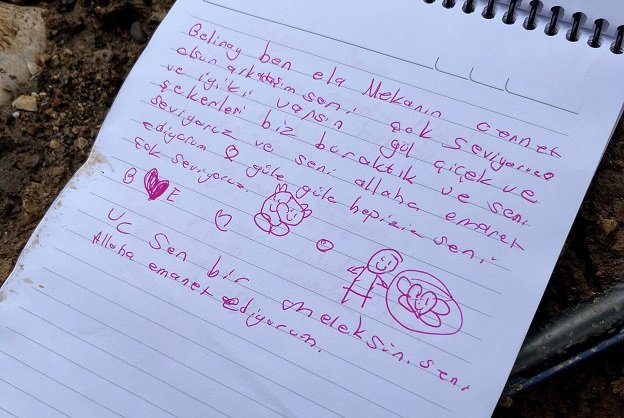 Belinay ben ela Mekanın cennet
olsun arkadaşım seni çok seviyoruz
ve iyiki varsın gül çiçek ve
şekerleri biz buraktık ve seni
seviyoruz ve seni allaha emanet
ediyorum güle güle hepizis seni
çok seviyoruz.
B E
UC sen bir meleksin. seni
Allaha emanet ediyorum.